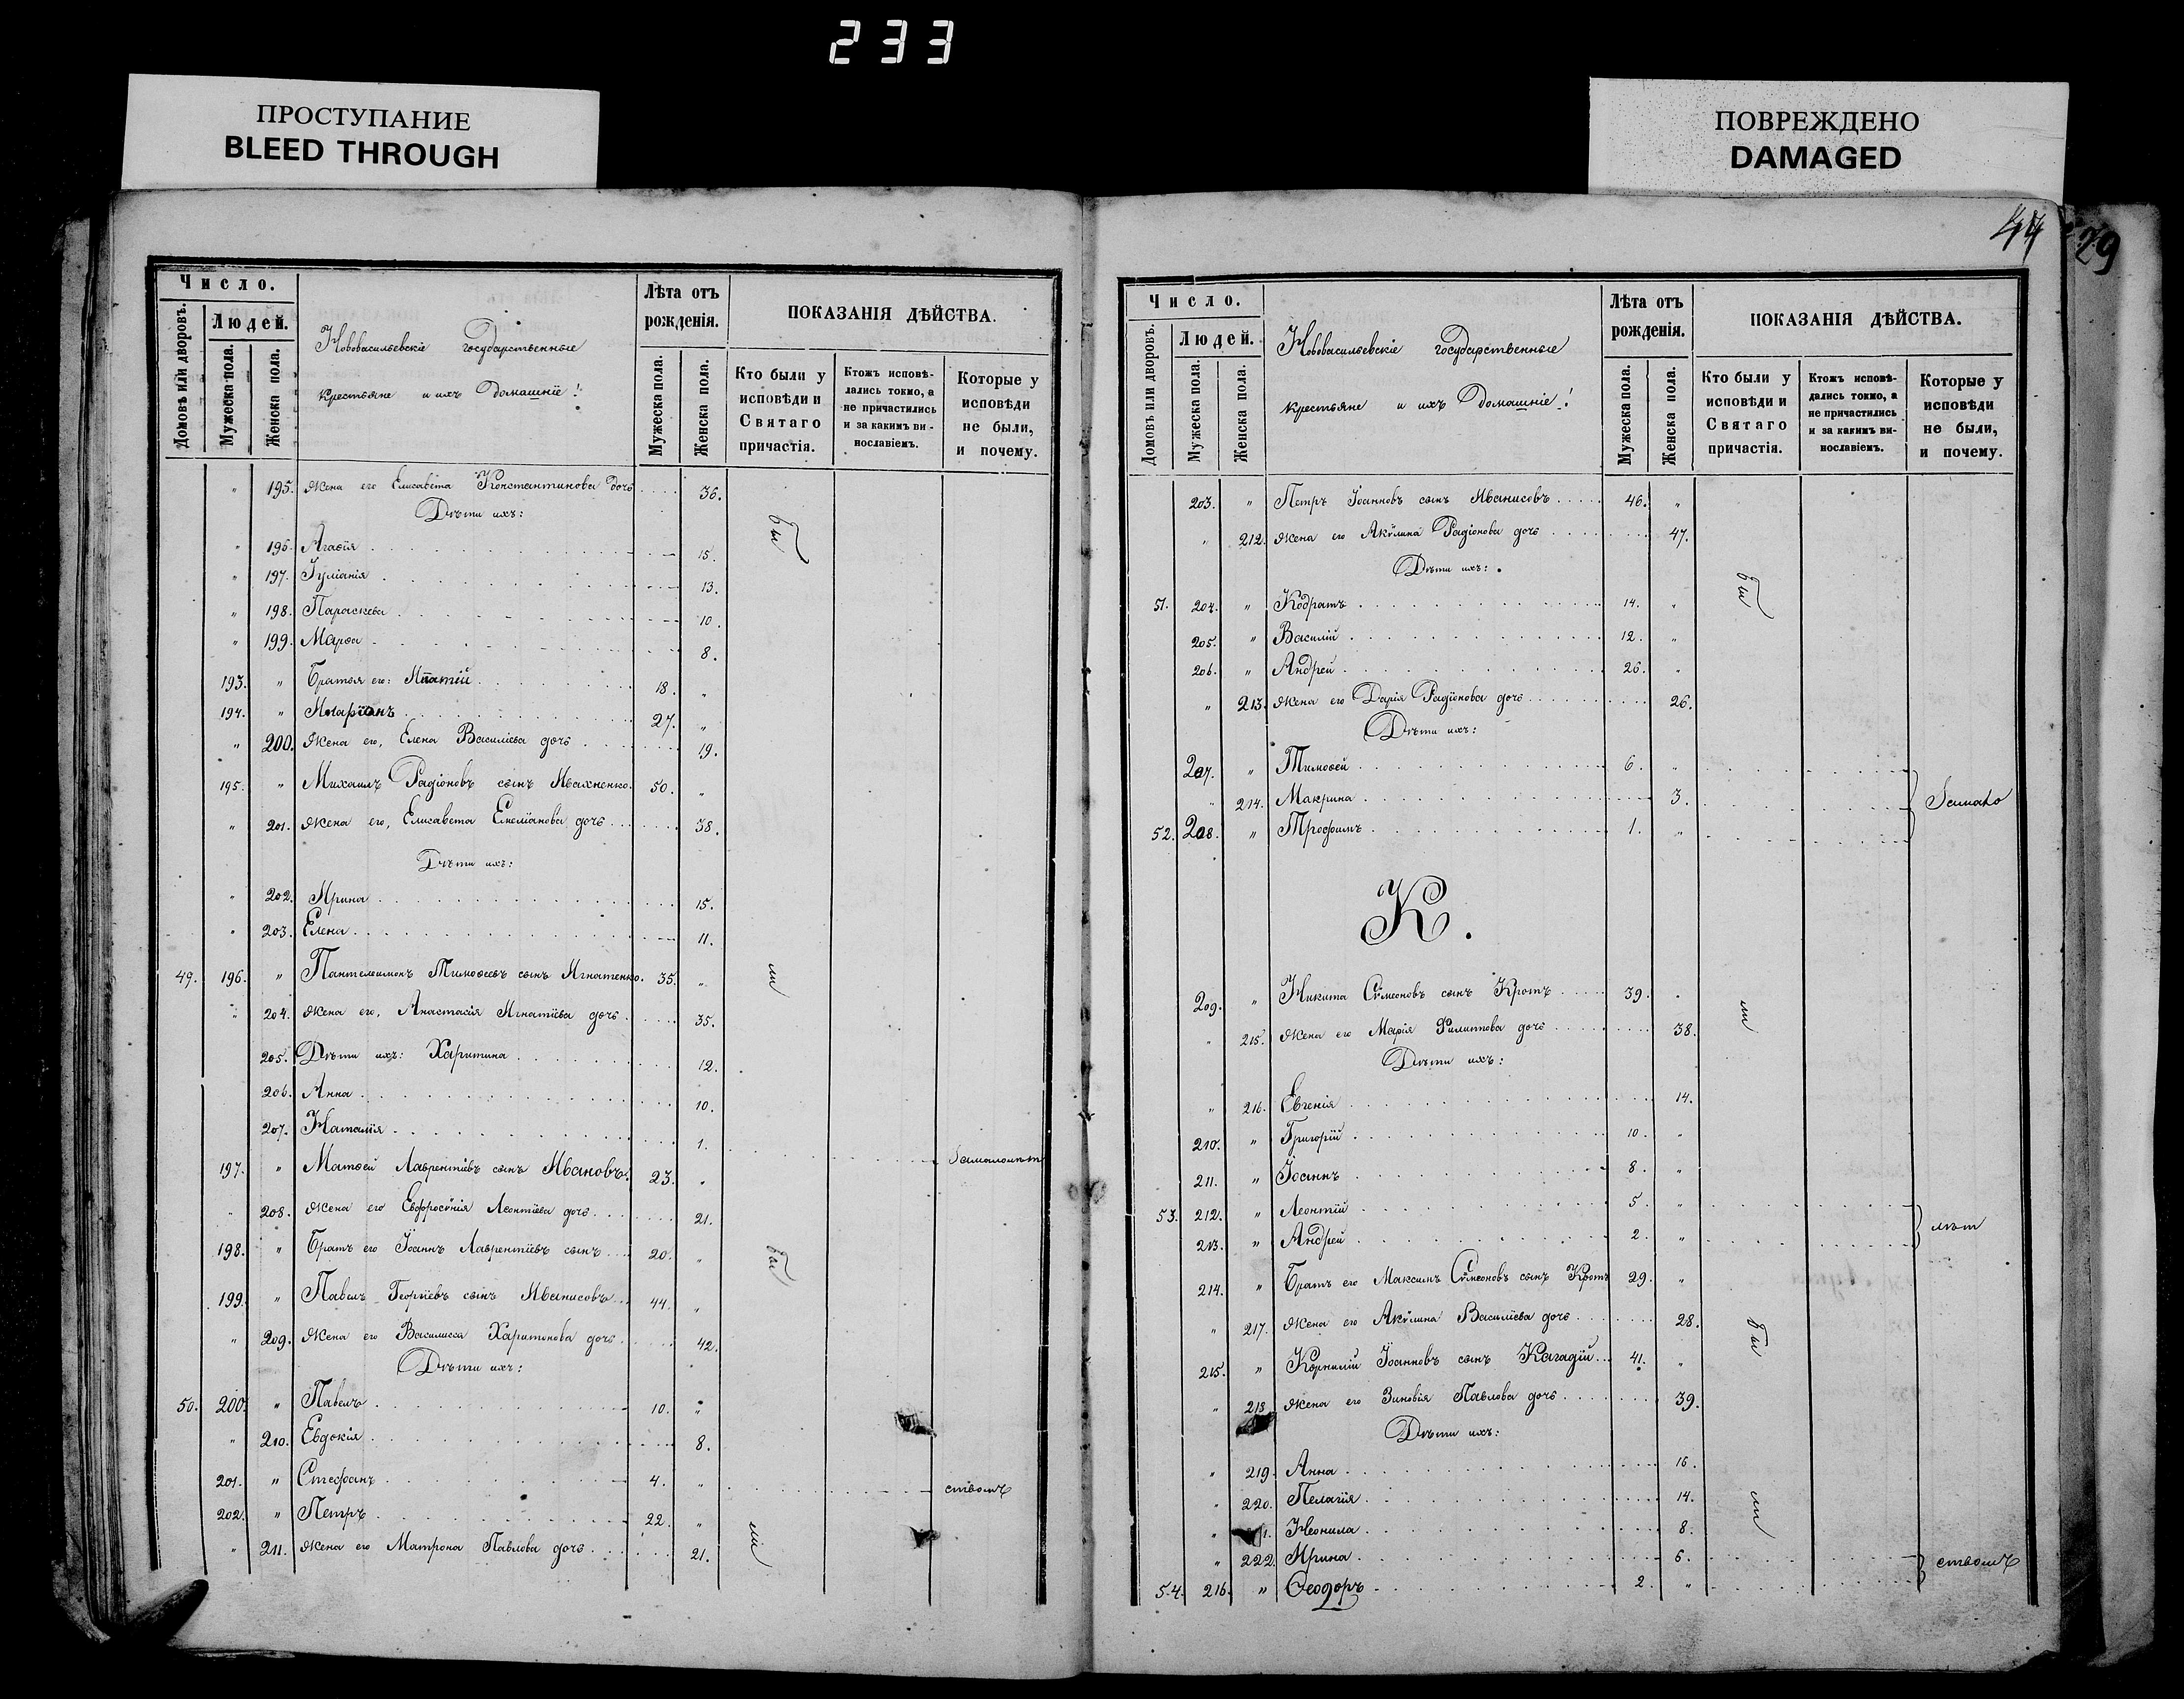 233
ПРОСТУПАНИЕ
BLEED THROUGH
ПОВРЕЖДЕНО
DAMAGED
Число.
Людей.
Домовъ или дворовъ.
Мужеска пола.
Женска пола.
Нововасильевскіе государственные
крестьяне и ихъ Домашніе!
Лѣта отъ
рожденія.
Мужеска пола.
Женска пола.
ПОКАЗАНІЯ ДѢЙСТВА.
Кто были у
исповѣди и
Святаго
причастія.
Ктожъ исповѣ-
дались токмо, а
не причастились
и за какимъ ви-
нославіемъ.
Которые у
исповѣди
не были,
и почему.
" 195. Жена его Елисавета Константинова дочь 36.
Дѣти ихъ:
бы
" 196. Агафія 15.
" 197. Іуліанія 13.
" 198. Параскева 10.
" 199. Марфа 8.
193. " Братья его: Ипатій 18. "
194. " Иларіонъ 27. "
" 200. Жена его, Елена Василіева дочь 19.
195. " Михаилъ Радіоновъ сынъ Ивахненко. 50. "
" 201. Жена его, Елисавета Емеліанова дочь 38.
Дѣти ихъ:
" 202. Ирина 15.
" 203. Елена 11.
49. 196. " Пантелеимонъ Тимофеевъ сынъ Игнатенко. 35. "
ли
" 204. Жена его, Анастасія Игнатіева дочь 35.
205. Дѣти ихъ: Харитина 12.
206. Анна 10.
207. Наталія 1.
Замалолѣт
197. " Матфей Лаврентіевъ сынъ Ивановъ. 23. "
208. Жена его Евфросинія Леонтіева дочь 21.
198. " Братъ его Іоаннъ Лаврентіевъ сынъ 20. "
бы
199. " Павелъ Георгіевъ сынъ Иванисовъ 44. "
" 209. Жена его Василисса Харитонова дочь 42.
Дѣти ихъ:
50. 200. " Павелъ 10. "
" 210. Евдокія 8.
201. " Стефанъ 4. " ствомъ
202. " Петръ 22. "
ли
" 211. Жена его Матрона Павлова дочь 21.
44
29
Число.
Людей.
Домовъ или дворовъ.
Мужеска пола.
Женска пола.
Нововасильевскіе государственные
крестьяне и ихъ Домашніе!
Лѣта отъ
рожденія.
Мужеска пола.
Женска пола.
ПОКАЗАНІЯ ДѢЙСТВА.
Кто были у
исповѣди и
Святаго
причастія.
Ктожъ исповѣ-
дались токмо, а
не причастились
и за какимъ ви-
нославіемъ.
Которые у
исповѣди
не были,
и почему.
203. " Петръ Іоанновъ сынъ Иванисовъ 46. "
" 212. Жена его Акулина Радіонова дочь 47.
Дѣти ихъ:
бы
51. 204. " Кодратъ 14. "
205. " Василій 12. "
206. " Андрей 26. "
" 213. Жена его Дарія Радіонова дочь 26.
Дѣти ихъ:
207. " Тимофей 6. "
" 214. Макрина 3.
Замало
52. 208. " Трофимъ 1. "
К.
209. " Никита Симеоновъ сынъ Кротъ 39. "
ли
" 215. Жена его Марія Филиппова дочь 38.
Дѣти ихъ:
" 216. Евгенія 14.
210. " Григорій 10. "
211. " Іоаннъ 8. "
53. 212. " Леонтій 5. "
лѣт
213. " Андрей 2. "
214. " Братъ его Максимъ Симеоновъ сынъ Кротъ 29. "
" 217. Жена его Акулина Василіева дочь 28.
бы
215. " Корнилій Іоанновъ сынъ Кагадій 41. "
" 218 Жена его Зиновія Павлова дочь 39.
Дѣти ихъ:
" 219. Анна 16.
" 220. Пелагія 14.
ли
" 1. Неонила 8.
" 222. Ирина 6.
ствомъ
54. 216. " Феодоръ 2. "